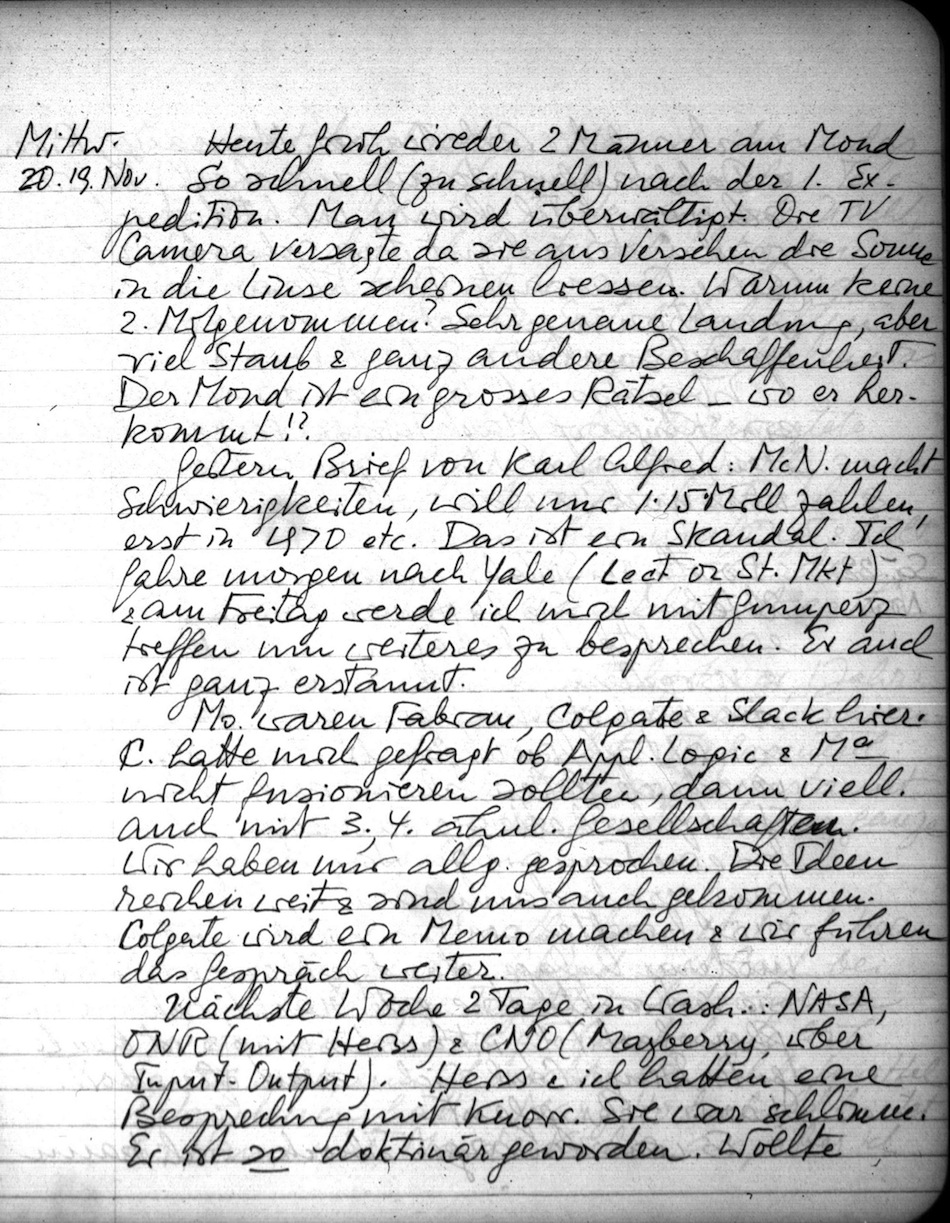 Mittw. Heute früh wieder 2 Männer am Mond
20.19. Nov. So schnell (zu schnell) nach der 1. Ex-
pedition. Man wird überwältigt. Die TV
Camera versagte da sie aus Versehen die Sonne
in die Linse scheinen liessen. Warum keine
2. Mitgenommen? Sehr genaue Landung, aber
viel Staub & ganz andere Beschaffenheit.
Der Mond ist ein grosses Rätsel – wo er her-
kommt!?
Gestern Brief von Karl Alfred: McN. macht
Schwierigkeiten, will nur 1.15 Mill zahlen,
erst in 1970 etc. Das ist ein Skandal. Ich
fahre morgen nach Yale (Lect on St. Mkt)
& am Freitag werde ich mich mit
treffen um weiteres zu besprechen. Er auch
ist ganz erstaunt.
Mo. waren Fabian, Colgate & Slack hier.
C. hatte mich gefragt ob Appl. Logic & Ma
nicht fusionieren sollten, dann viell.
auch mit 3, 4. ähnl. Gesellschaften.
Wir haben nur allg. gesprochen. Die Ideen
reichen weit & sind uns auch gekommen.
Colgate wird ein Memo machen & wir führen
das Gespräch weiter.
Nächste Woche 2 Tage in Wash.: NASA,
ONR (mit Heiss) & CNO (Mayberry, über
Input-Output). Heiss & ich hatten eine
Besprechung mit Knorr. Sie war schlimm.
Er ist so doktrinär geworden. Wollte